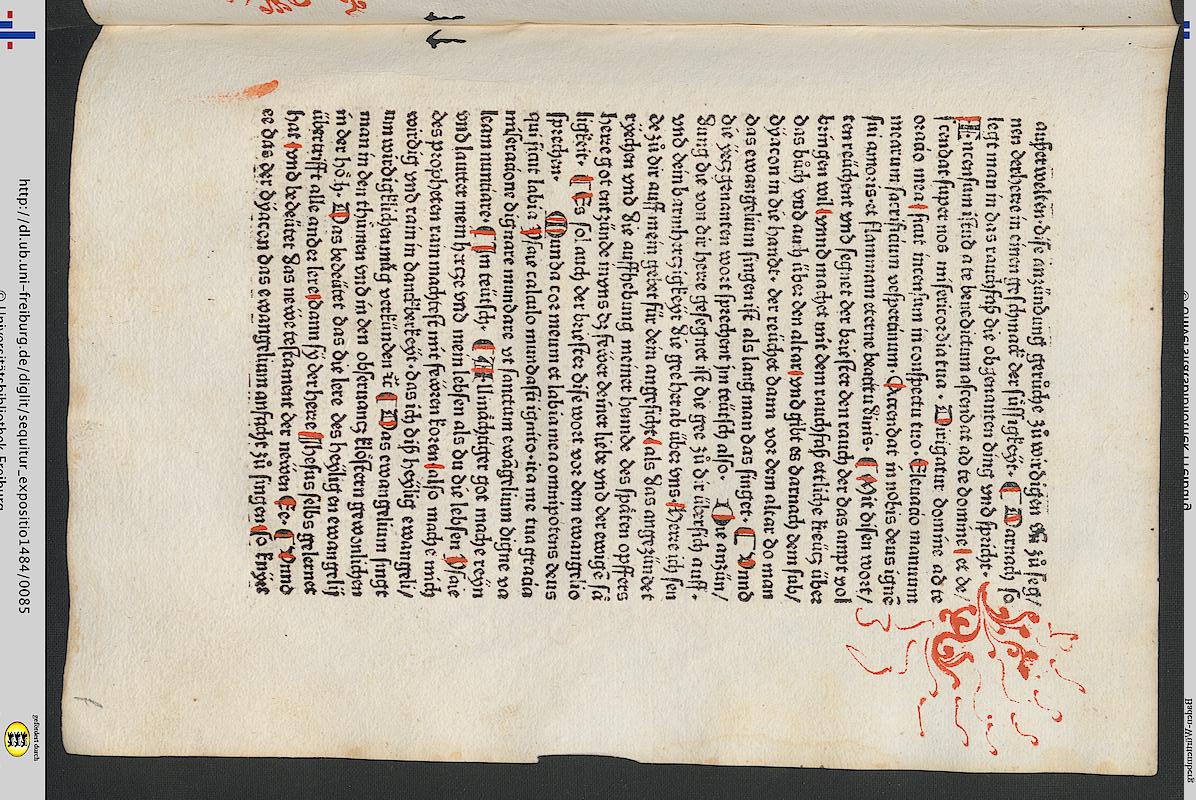 außerwelten dise anzündung gerüche zů wirdigen vñ zů seg/
nen der herre in einen geschmack der süssigkeyt. ¶ Darnach so
legt man in das rauchfaß die obgenanten ding vnd spricht.
Incensum istud a te benedictum ascendat ad te domine et de/
scendat super nos misericordia tua. Dirigatur domine ad te
oracio mea sicut incensum in conspectu tuo. Eleuacio manuum
mearum sacrificium vespertinum. Accendat in nobis deus ignē
sui amoris et flammam eterne beatitudinis. ¶ Mit disen wort/
ten reüchent vnd segnet der briester den rauch der das ampt vol
bringen wil vnnd machet mit dem rauchfaß ettliche kreütz über
das bůch vnd auch über den altar vnd gibt es darnach dem sub/
dyacon in die handt. der reüchet dann vor dem altar do man
das ewangelium singen ist als lang man das singet. ¶ Vnnd
die yeczgenanten wort sprechent im teütsch also. Die anzün/
dung die von dir herre gesegnet ist die gee zů dir übersich auff.
vnd dein barmherczigkeyt die gee herab über vns. Herre ich sen
de zů dir auff mein gebet für dein angesicht als das angezündet
ryechen vnd die auffhebung meiner hennde des späten opffers
herre got entzünde in vns dz feüer deiner liebe vnd der ewige sä
ligkeit. ¶ Es sol auch der briester dise wort vor dem ewangelio
sprechen. Munda cor meum et labia mea omnipotens deus
qui sicut labia Ysaie calculo mundasti ignito. ita me tua gracia
miseracione dignare mundare vt sanctum ewāgelium digne va
leam nunciare. ¶ Im teütsch. ¶ Allmächtiger got mache reyn
vnd lauter mein hercze vnd mein lebsen als du die lebsen Ysaie
des propheten rain machtest mit feüren koren also mache mich
wirdig vnd rain in danckberkeyt. das ich diß heylig ewangeli/
um wirdigklichen müg verkünden ꝛc ¶ Das ewangelium singt
man in den thůmen vnd in den obseruantz klöstern gewonlichen
in der höh. Das bedeütet das die lere des heyligen ewangelij
übertrifft alle ander lere dann sy der herre Jhesus selbs gelernet
hat vnd bedeütet das new testament der newen Ee. ¶ Vnnd
ee das der dyacon das ewangelium anfacht zů singen so knyet
http://dl.ub.uni-freiburg.de/diglit/sequitur_expositio1484/0085
© Universitätsbibliothek Freiburg
gefördert durch